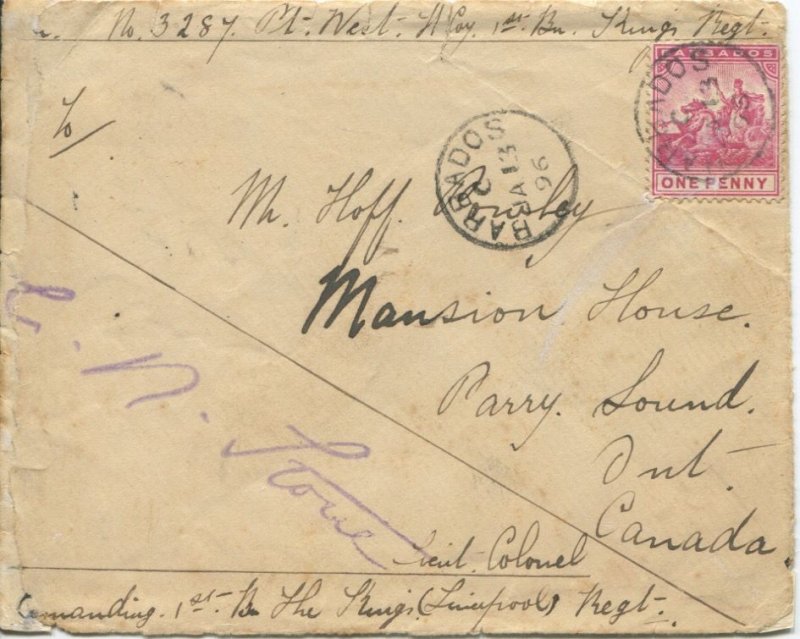 No. 3287. Pt. West. H Coy. 1st. Bn. Kings Regt.
BARBADOS
ONE PENNY
BARBADOS
C
MA 13
96
BARBADOS
C
MA 13
96
To
Mr. Hoff.
Mansion House.
Parry. Sound.
Ont.
Canada.
Stone
Lieut. Colonel
Comanding. 1st. Bn The Kings (Liverpool) Regt.